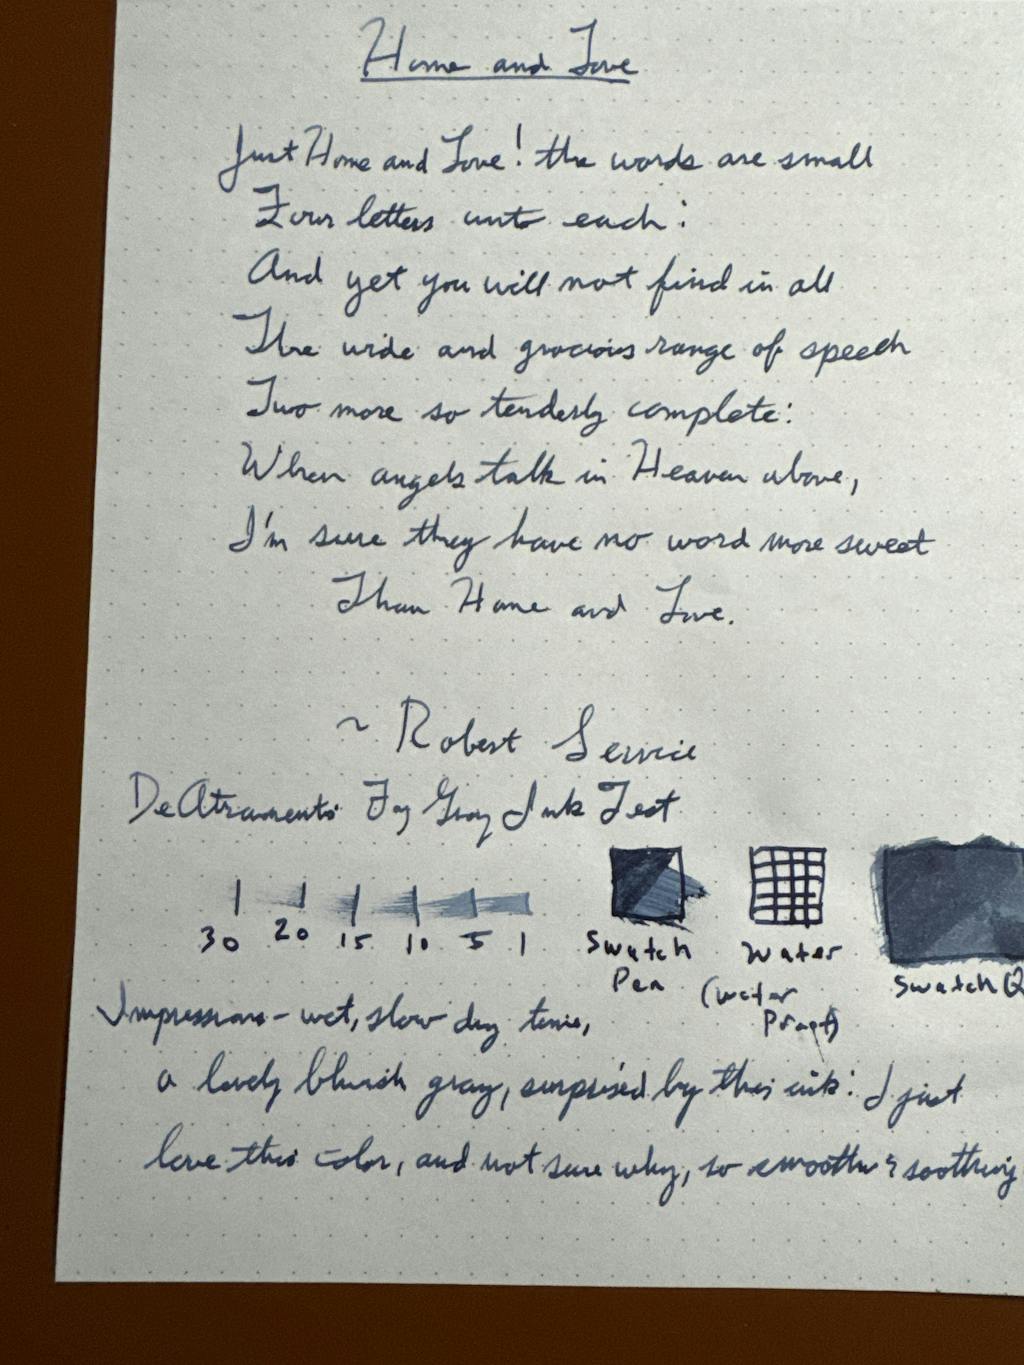 Home and Love
Just Home and Love! the words are small
Four letters unto each:
And yet you will not find in all
The wide and gracious range of speech
Two more so tenderly complete:
When angels talk in Heaven above,
I'm sure they have no word more sweet
Than Home and Love.
~ Robert Service
DeAtramentis Fog Gray Ink Test
30 20 15 10 5 1
Swatch Pen
Water (water Proof)
Swatch Q
Impressions - wet, slow dry time,
a lovely bluish gray, surprised by this ink: I just
love this color, and not sure why, so smooth & soothing